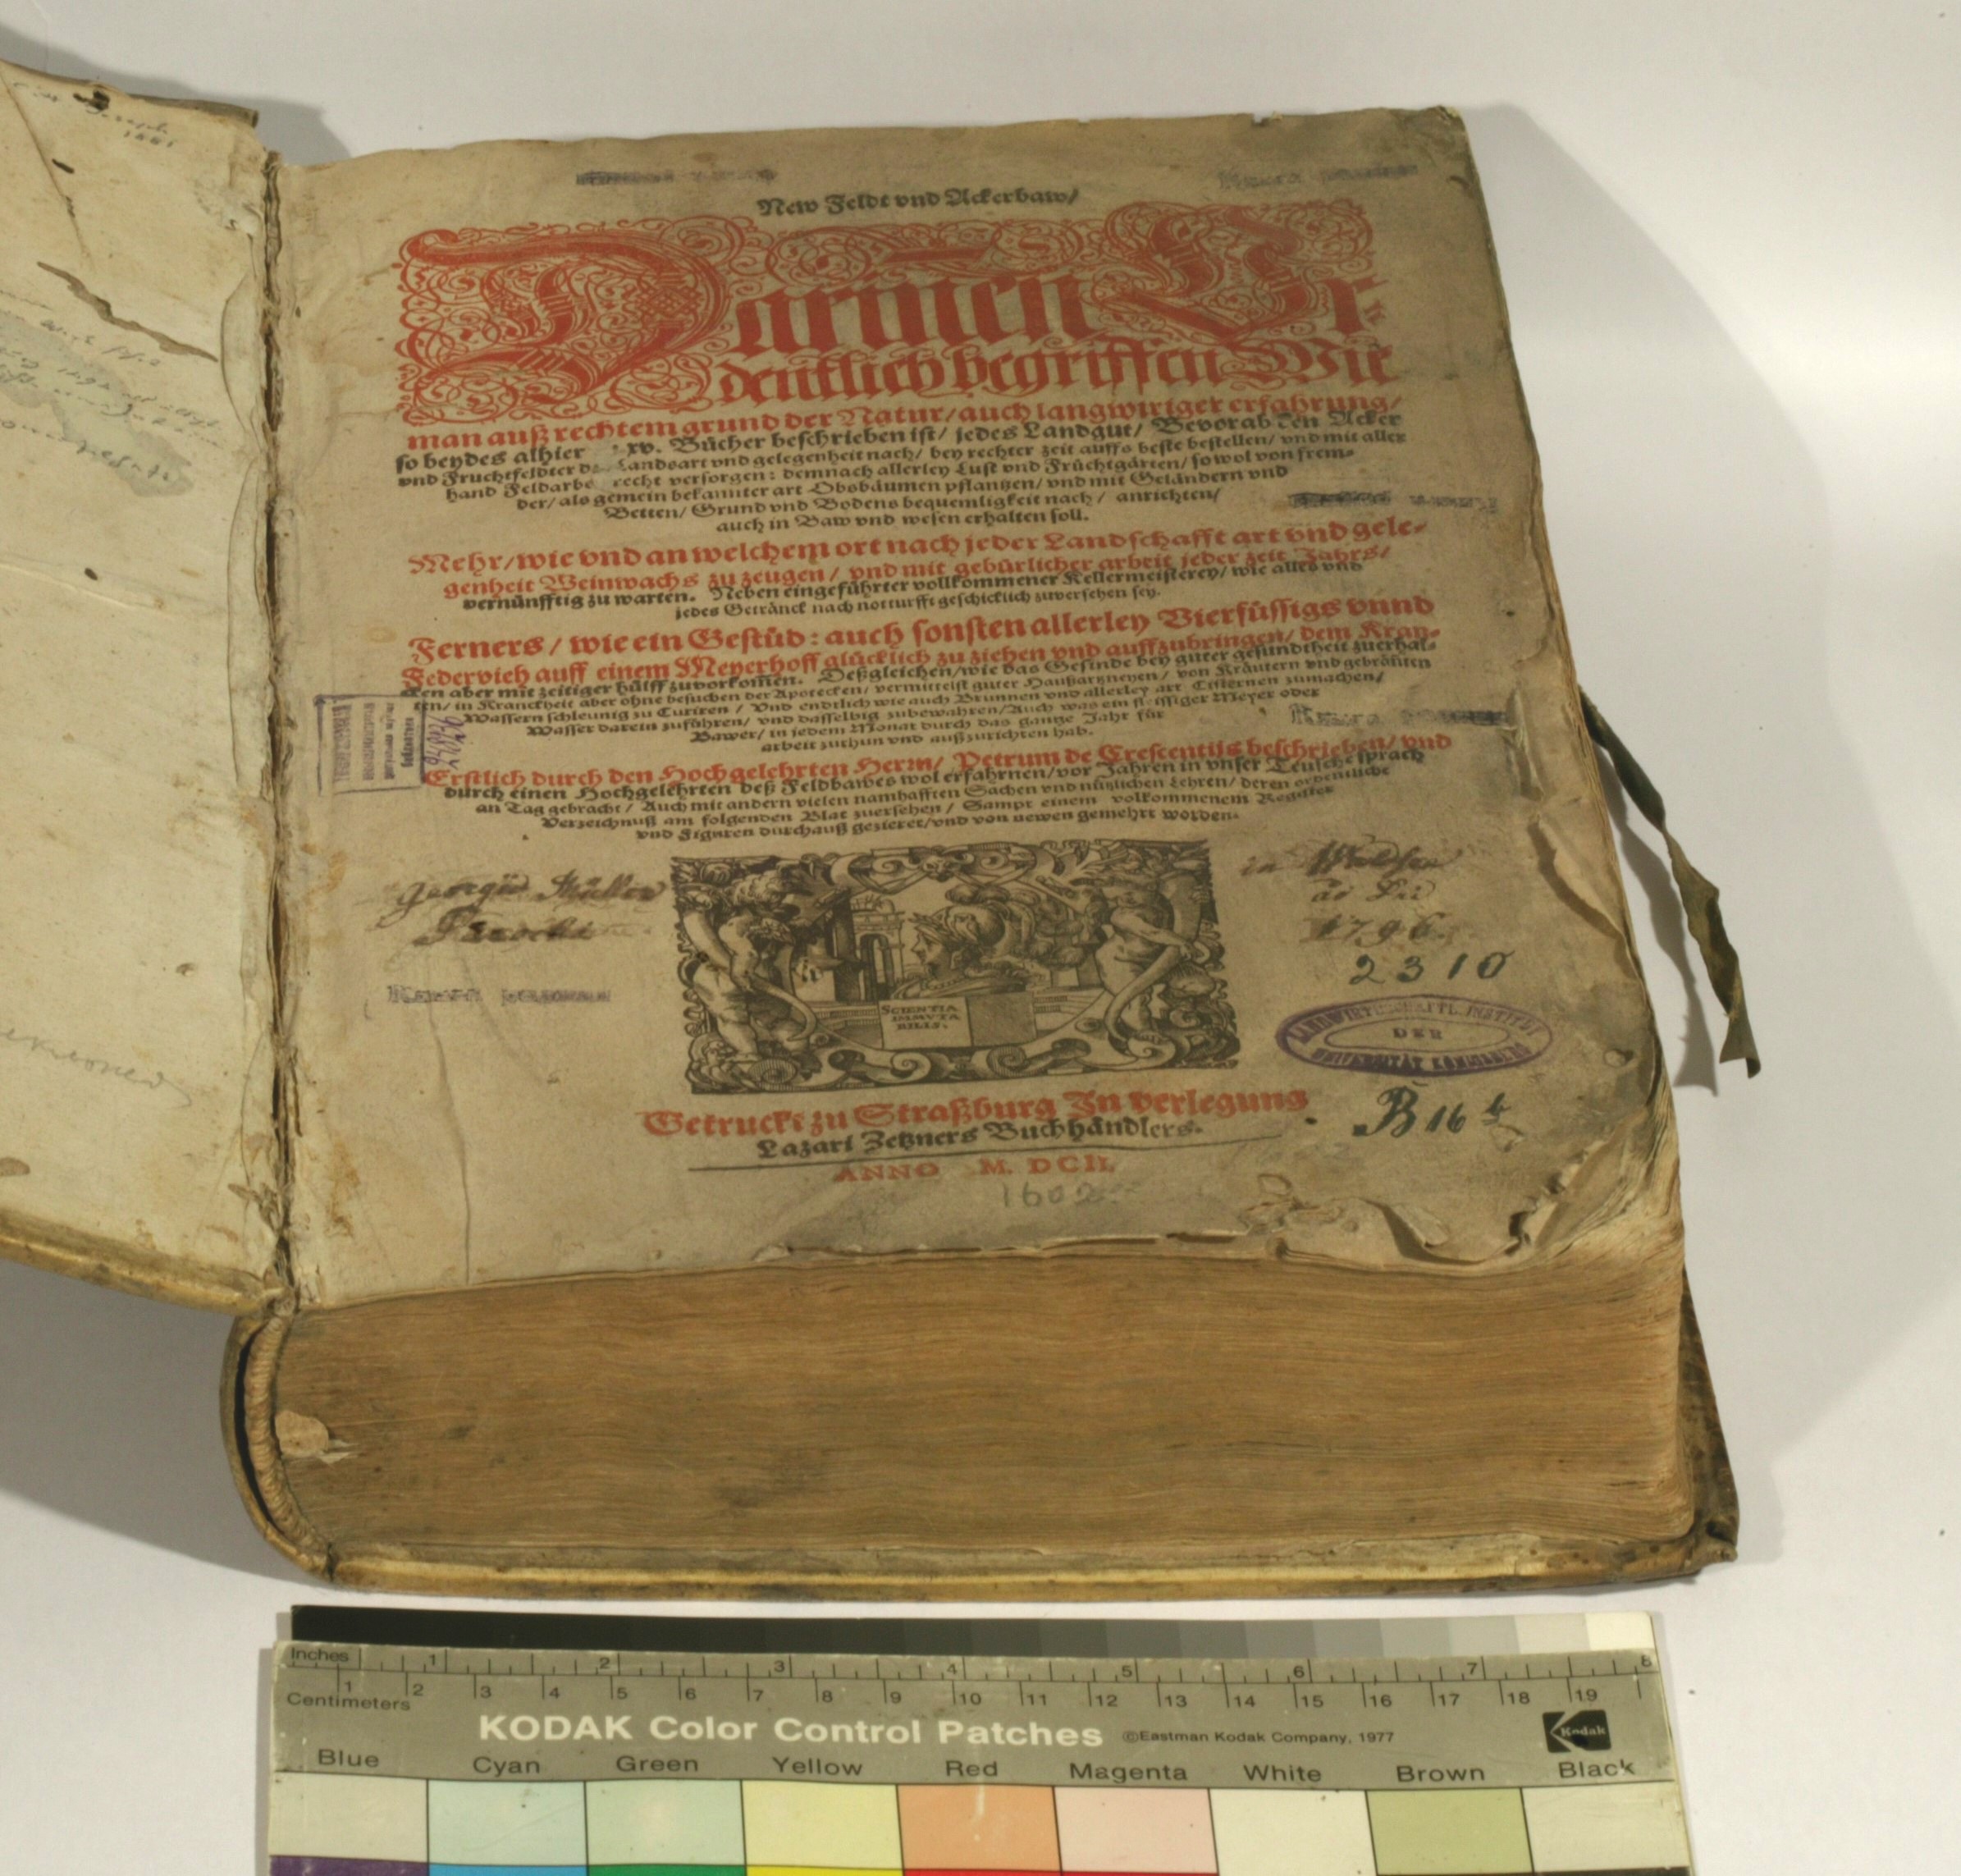 New Feldt vnd Ackerbaw/
Darinnen Or-
dentlich begriffen Wie
man auß rechtem grund der Natur/ auch langwiriger erfahrung/
so beydes alhier xv. Bücher beschrieben ist/ jedes Landgut/ Bevorab den Acker
vnd Fruchtfeldter Landsart vnd gelegenheit nach/ bey rechter zeit auffs beste bestellen/ vnd mit aller
hand Feldarbe recht versorgen: demnach allerley Lust vnd Früchtgärten/ so wol von frem-
der/ als gemein bekannter art Obsbäumen pflantzen/ vnd mit Geländern vnd
Betten/ Grund vnd Bodens bequemligkeit nach/ anrichten/
auch in Baw vnd wesen erhalten soll.
Mehr/ wie vnd an welchem ort nach jeder Landschafft art vnd gele-
genheit Weinwachs zu zeugen/ vnd mit gebürlicher arbeit jeder zeit Jahrs/
vernünfftig zu warten. Neben eingeführter vollkommener Kellermeisterey/ wie alles vnd
jedes Getränck nach notturfft geschicklich zuversehen sey.
Ferners/ wie ein Gestüd: auch sonsten allerley Vierfüssigs vnnd
Federvieh auff einem Meyerhoff glücklich zu ziehen vnd auffzubringen/ dem Kran-
cken aber mit zeitiger hülff zuvorkom̃en. Deßgleichen/ wie das Gesinde bey guter gesundtheit zuerhal-
ten/ in Kranckheit aber ohne besuchen der Apotecken/ vermittelst guter Haußartzneyen/ von Kräutern vnd gebräñten
Wassern schleunig zu Curiren/ Vnd endtlich wie auch Brunnen vnd allerley art Cisternen zumachen/
Wasser darein zuführen/ vnd dasselbig zubewahren/ Auch was ein fleissiger Meyer oder
Bawer/ in jedem Monat durch das gantze Jahr für
arbeit zuthun vnd außzurichten hab.
Erstlich durch den Hochgelehrten Herrn/ Petrum de Crescentijs beschrieben/ vnd
durch einen Hochgelehrten deß Feldbawes wol erfahrnen/ vor Jahren in vnser Teutsche sprach
an Tag gebracht/ Auch mit andern vielen namhafften Sachen vnd nützlichen Lehren/ deren ordentliche
Verzeichnuß am folgenden Blat zuersehen/ Sampt einem volkommenem Register
vnd Figuren durchauß gezieret/ vnd von newen gemehrt worden.
Georgii Müller
in
1796.
2310
SCIENTIA
IMMVTA
BILIS.
LANDWIRTHSCHAFTL. INSTITUT
DER
UNIVERSITÄT KÖNIGSBERG
Getruckt zu Straßburg In verlegung
Lazari Zetzners Buchhändlers.
B 16
ANNO M. DCII.
1602
Inches 1 2 3 4 5 6 7 8
Centimeters 1 2 3 4 5 6 7 8 9 10 11 12 13 14 15 16 17 18 19
KODAK Color Control Patches ©Eastman Kodak Company, 1977 Kodak
Blue Cyan Green Yellow Red Magenta White Brown Black